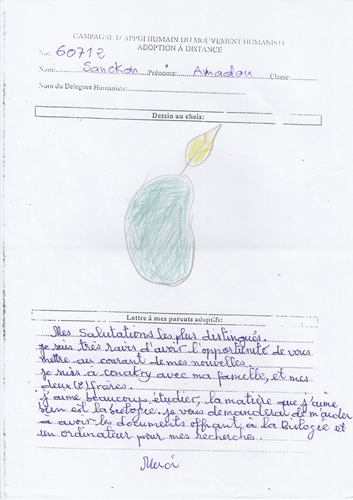 CAMPAGNE D'APPUI HUMAIN DU MOUVEMENT HUMANISTE
ADOPTION À DISTANCE
No: 60712
Nom: Sanekon Prénoms: Amadou Classe:
Nom du Délégué Humaniste:
Dessin au choix:
Lettre à mes parents adoptifs:
Mes Salutations les plus distingués.
je suis très ravis d'avoir l'opportunité de vous
mettre au courant de mes nouvelles.
je suis à conakry avec ma famille, et mes
deux frères.
j'aime beaucoup étudier, la matière que j'aime
bien est la biologie. je vous demanderai de m'aider
à avoir les documents offrant à la Biologie et
un ordinateur pour mes recherches.
Merci